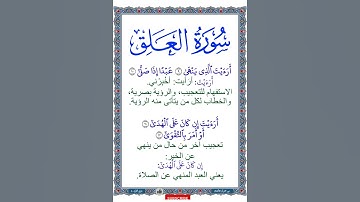 سُورَةُ العَلَقِ
أَرَءَيْتَ ٱلَّذِى يَنْهَىٰ ۝ عَبْدًا إِذَا صَلَّىٰٓ ۝
أَرَءَيْتَ: أرأيت: أخبرني.
الاستفهام للتعجيب، والرؤية بصرية،
والخطاب لكل من يتأتى منه الرؤية.
أَرَءَيْتَ إِن كَانَ عَلَى ٱلْهُدَىٰٓ ۝
أَوْ أَمَرَ بِٱلتَّقْوَىٰٓ ۝
تعجيب آخر من حال من ينهي
عن الخير:
إِن كَانَ عَلَى ٱلْهُدَىٰٓ:
يعني العبد المنهي عن الصلاة.